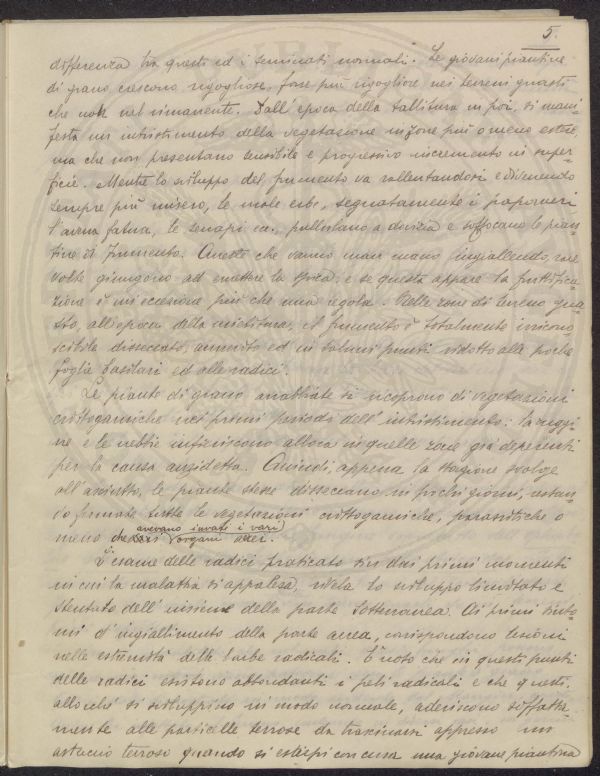 5.
differenza tra questi ed i seminati normali. Le giovani piantine
di grano crescono rigogliose, forse più rigogliose nei terreni guasti
che non nel rimanente. Dall'epoca della sallitura in poi, si mani-
festa un intristimento della vegetazione in zone più o meno estese,
ma che non presentano sensibile e progressivo incremento in super-
ficie. Mentre lo sviluppo del frumento va rallentandosi e divenendo
sempre più misero, le male erbe, segnatamente i papaveri
l'avena fatua, le senapi ecc. pullulano a dovizia e soffocano le pian-
tine di frumento. Queste che vanno man mano ingiallendo, rare
volte giungono ad emettere la spica; e se questa appare la fruttifica-
zione è un'eccezione più che una regola. Nelle zone di terreno gua-
sto, all'epoca della mietitura, il frumento è totalmente irricono-
scibile disseccato, annerito ed in taluni punti ridotto alle poche
foglie basilari ed alle radici.
Le piante di grano ammalate si ricoprono di vegetazioni
crittogamiche nei primi periodi dell'intristimento: la ruggi-
ne e le nebbie infieriscono allora in quelle zone già deperenti
per la causa anzidetta. Quindi, appena la stagione volge
all'asciutto, le piante stesse disseccano in pochi giorni, restan-
do fermate tutte le vegetazioni crittogamiche, parassitiche o
meno che avevano invasi i vari organi aerei.
L'esame delle radici praticato sin dai primi momenti
in cui la malattia si appalesa, rivela lo sviluppo limitato e
stentato dell'insieme della parte sotterranea. Ai primi sinto-
mi d'ingiallimento della parte aerea, corrispondono lesioni
nelle estremità delle barbe radicali. È noto che in questi punti
delle radici esistono abbondanti i peli radicali e che questi,
allorché si sviluppino in modo normale, aderiscono soffatta-
mente alle particelle terrose da trascinarsi appresso un
astuccio terroso quando si estirpi con cura una giovane piantina